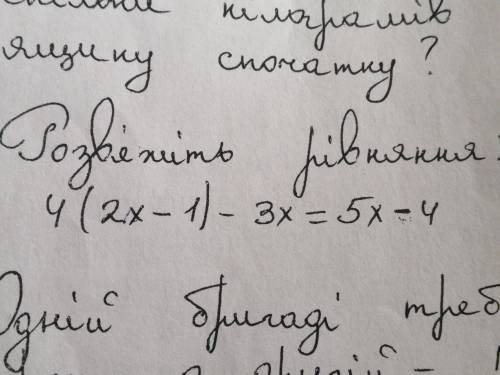 кілограмів
ящику спочатку?
Розвяжіть рівняння:
4(2x-1)-3x=5x-4
Одній бригаді треб